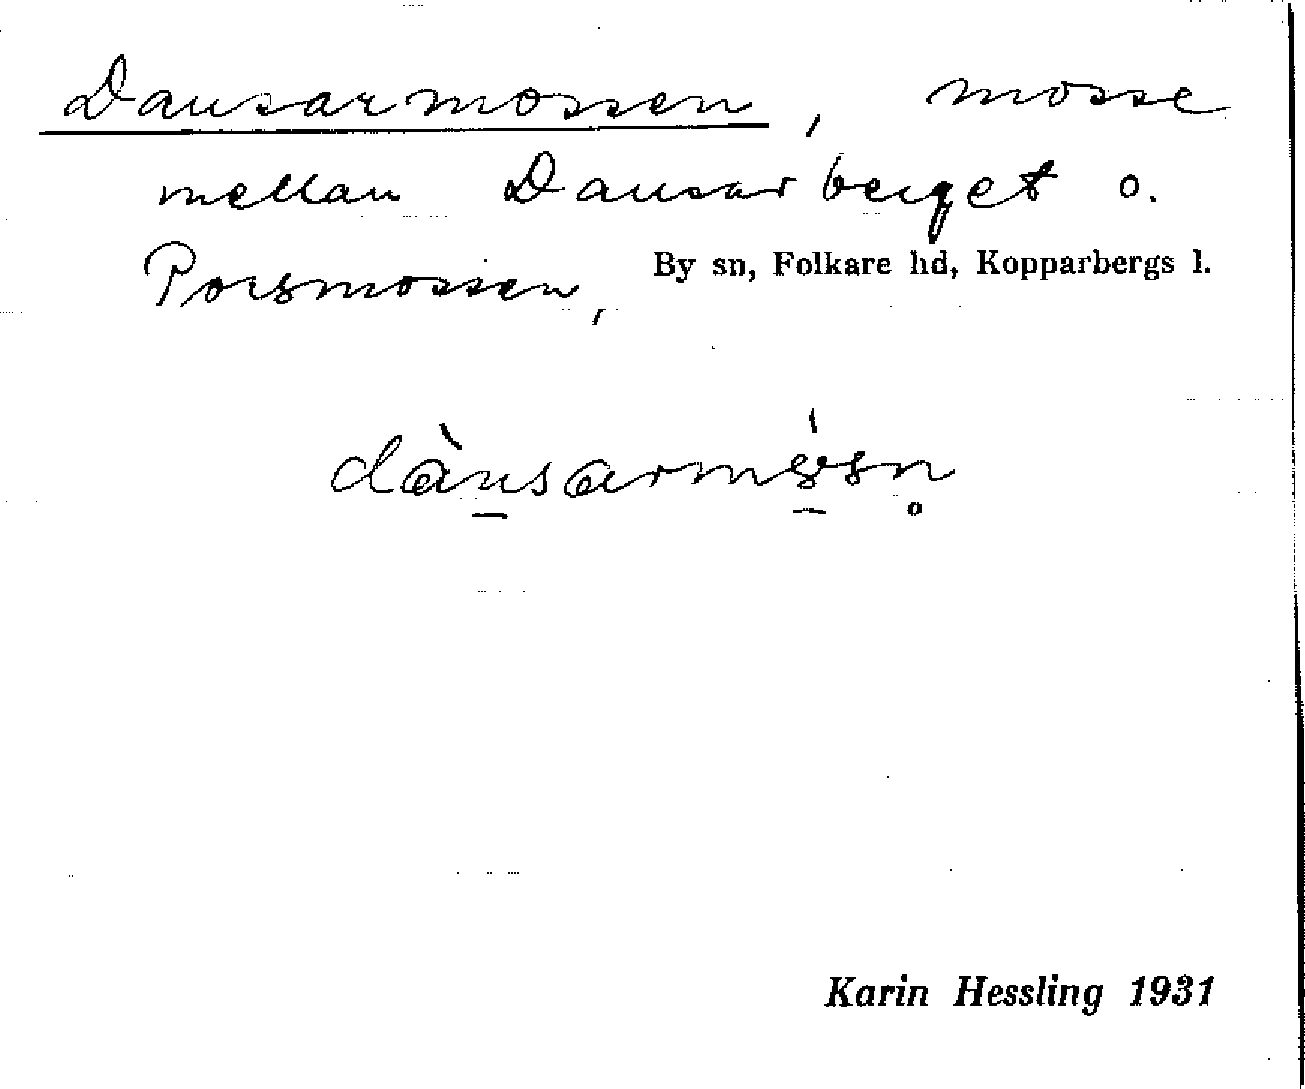 Dansarmossen, mosse
mellan Dansarberget o.
Porsmossen, By sn, Folkare hd, Kopparbergs l.
dànsarmösn̥
Karin Hessling 1931